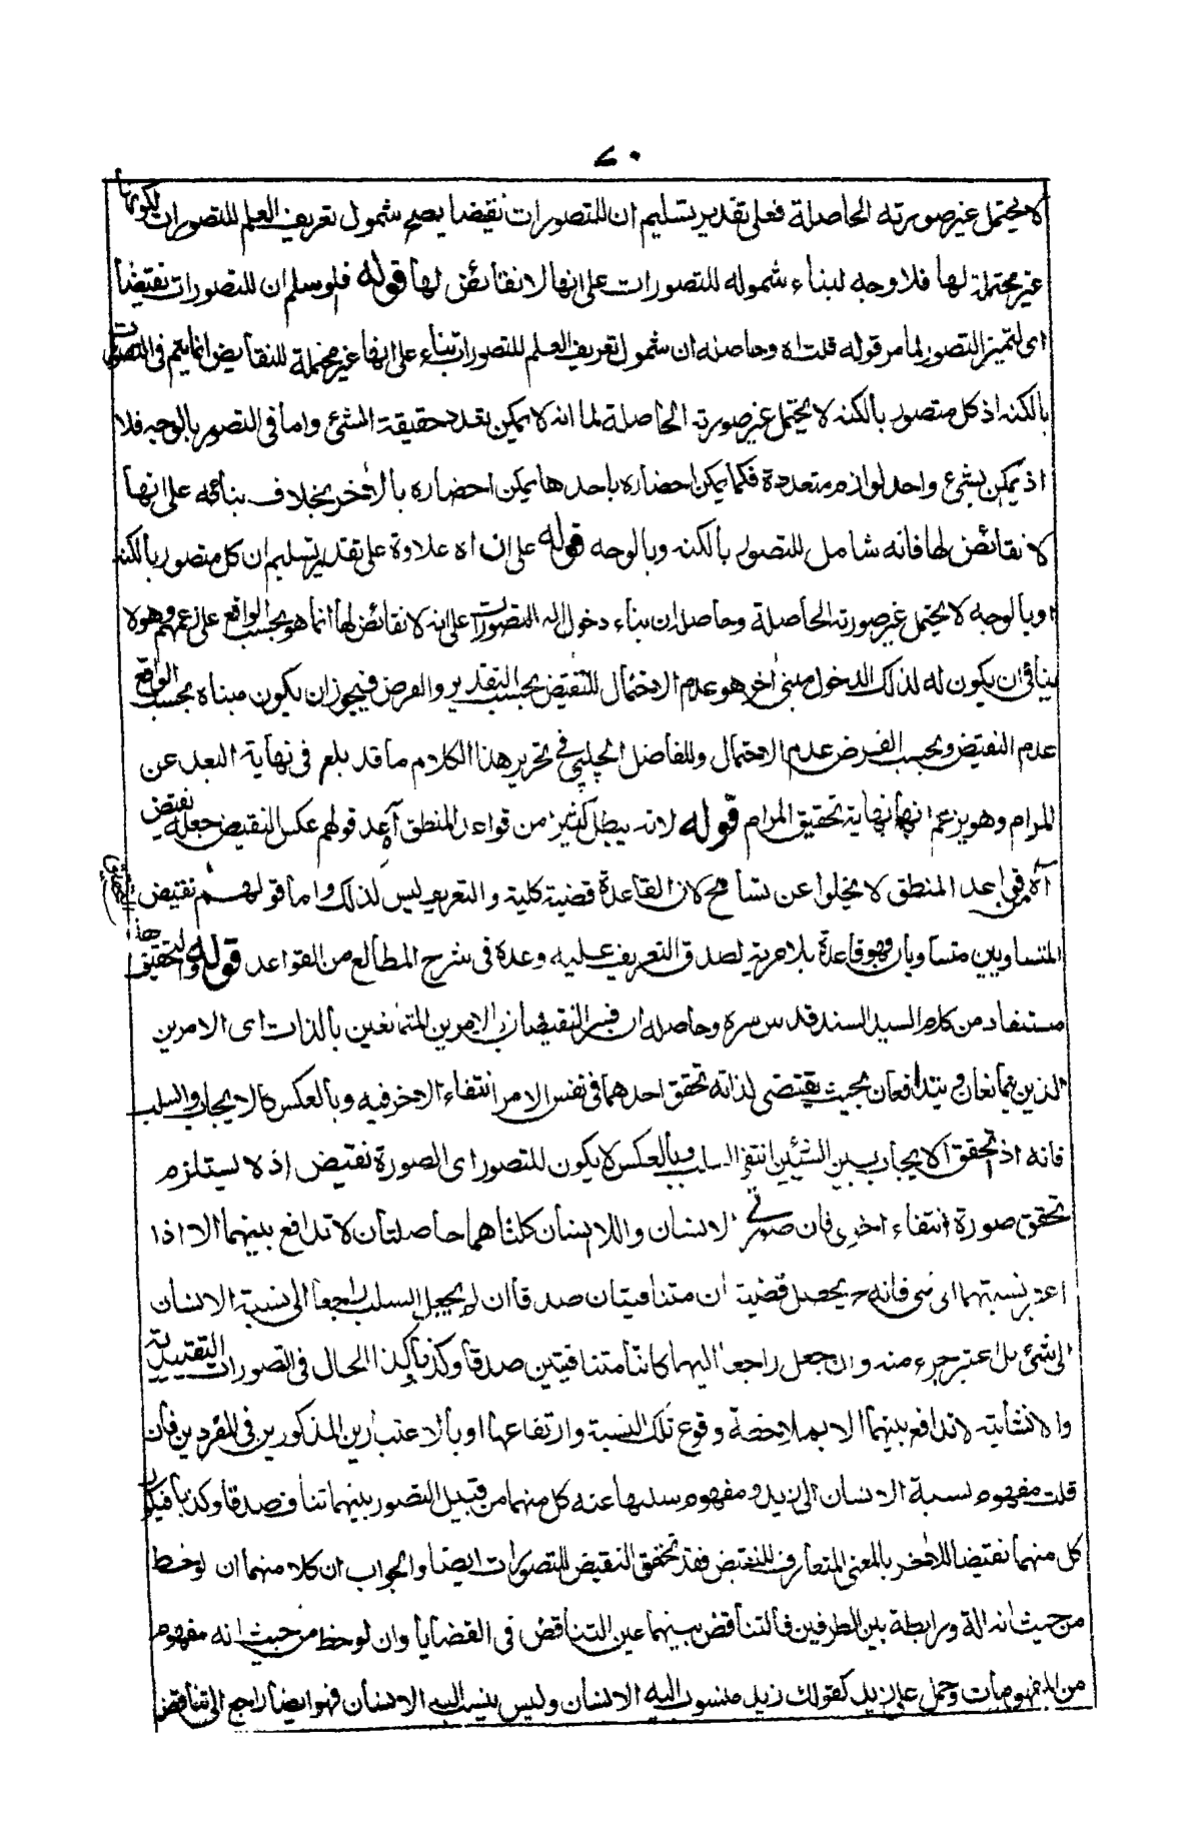 ٧٠
لا يحتمل غير صورته الحاصلة فعلى تقدير تسليم ان للتصورات نقيضا يصح شمول تعريف العلم للتصورات لكونها
غير محتملة لها فلا وجه لبناء شموله للتصورات على انها لا نقائض لها قوله فلو سلم ان للتصورات نقيضا
اى لتميز التصور لما مر قوله قلت اه وحاصله ان شمول تعريف العلم للتصورات بناء على انها غير محتملة للنقايض انما يتم فى التصورات
بالكنه اذ كل متصور بالكنه لا يحتمل غير صورته الحاصلة لما انه لا يمكن تعدد حقيقة الشئ واما فى التصور بالوجه فلا
اذ يمكن لشئ واحد لوازم متعددة فكما يمكن احضاره باحدها يمكن احضاره بالاخر بخلاف بنائه على انها
لا نقائض لها فانه شامل للتصور بالكنه وبالوجه قوله على ان اه علاوة على تقدير تسليم ان كل متصور بالكنه
او بالوجه لا يحتمل غير صورته الحاصلة وحاصله ان بناء دخول التصورات على انه لا نقائض لها انما هو بحسب الواقع على زعمهم وهو لا
ينافى ان يكون له لذلك الدخول مبنى اخر هو عدم الاحتمال للنقيض بحسب التقدير والفرض فيجوز ان يكون مبناه بحسب الواقع
عدم النقيض وبحسب الفرض عدم الاحتمال وللفاضل الچلپى فى تحرير هذا الكلام ما قد بلغ فى نهاية البعد عن
المرام وهو يزعم انها نهاية تحقيق المرام قوله لانه يبطل كثيرا من قواعد المنطق اه عد قولهم عكس النقيض جعل نقيض
اه من قواعد المنطق لا يخلوا عن تسامح لان القاعدة قضية كلية والتعريف ليس كذلك واما قولهم نقيض
المتساويين متساويان فهو قاعدة بلا مرية لصدق التعريف عليه وعده فى شرح المطالع من القواعد قوله والتحقيق هذا التحقيق
مستفاد من كلام السيد السند قدس سره وحاصله ان فسر النقيضان بالامرين المتمانعين بالذات اى الامرين
الذين يتمانعان ويتدافعان بحيث يقتضى لذاته تحقق احدهما فى نفس الامر انتفاء الاخر فيه وبالعكس كالايجاب والسلب
فانه اذ تحقق الايجاب بين الشيئين انتفى السلب وبالعكس لا يكون للتصور اى الصورة نقيض اذ لا يستلزم
تحقق صورة انتفاء اخرى فان صورتى الانسان واللا انسان كلتاهما حاصلتان لا تدافع بينهما الا اذا
اعتبر نسبتهما الى شئ فانه ح يحصل قضيتان متنافيتان صدقا ان لم يجعل السلب راجعا الى نسبة الانسان
الى شئ بل اعتبر جزء منه وان جعل راجعا اليهما كانتا متنافيتين صدقا وكذبا كذا الحال فى التصورات التقييدية
والانشائية لا تدافع بينهما الا بملاحظة وقوع تلك النسبة وارتفاعها او بالاعتبارين المذكورين فى المفردين فان
قلت مفهوم نسبة الانسان الى زيد ومفهوم سلبها عنه كل منهما من قبيل التصور بينهما تناف صدقا وكذبا فيكون
كل منهما نقيضا للاخر بالمعنى المتعارف للنقيض فقد تحقق النقيض للتصورات ايضا والجواب ان كلا منهما ان لوحظ
من حيث انه الة ورابطة بين الطرفين فالتناقض بينهما عين التناقض فى القضايا وان لوحظ من حيث انه مفهوم
من المفهومات وحمل على زيد كقولك زيد منسوب اليه الانسان وليس ينسب اليه الانسان فهو ايضا راجع الى تناقض